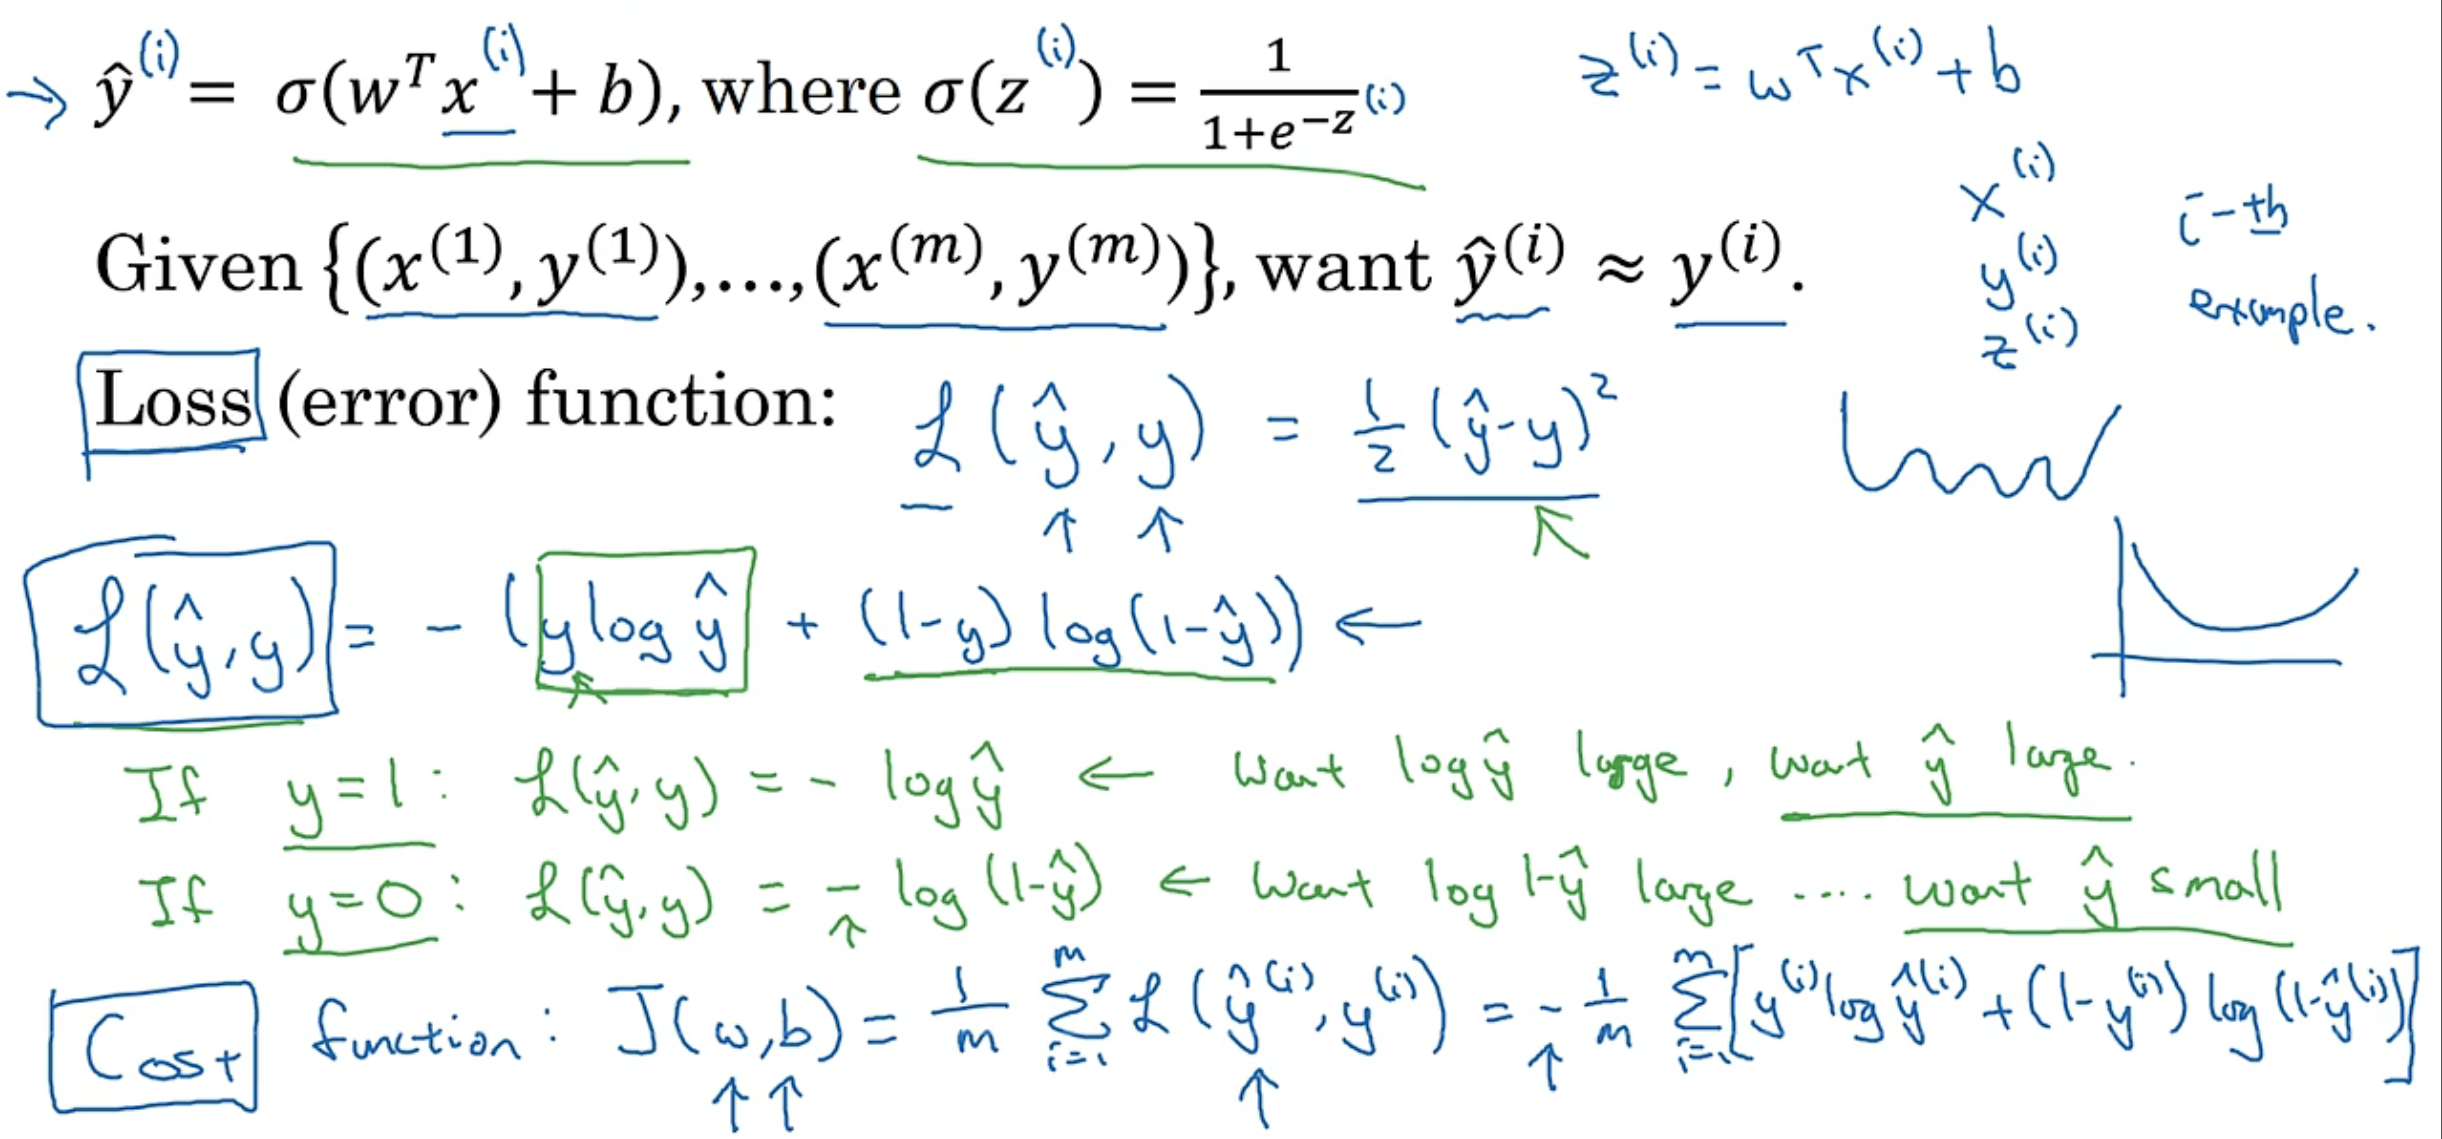 → ŷ⁽ⁱ⁾ = σ(wᵀx⁽ⁱ⁾ + b), where σ(z⁽ⁱ⁾) = 1/(1+e^(−z⁽ⁱ⁾))   z⁽ⁱ⁾ = wᵀx⁽ⁱ⁾ + b
Given {(x⁽¹⁾, y⁽¹⁾),…,(x⁽ᵐ⁾, y⁽ᵐ⁾)}, want ŷ⁽ⁱ⁾ ≈ y⁽ⁱ⁾.
x⁽ⁱ⁾
y⁽ⁱ⁾
z⁽ⁱ⁾
i-th
example.
Loss (error) function: ℒ(ŷ, y) = ½(ŷ-y)²
↑ ↑
ℒ(ŷ, y) = - (y log ŷ + (1-y) log(1-ŷ)) ←
If y=1: ℒ(ŷ, y) = - log ŷ ← Want log ŷ large, want ŷ large.
If y=0: ℒ(ŷ, y) = - log (1-ŷ) ← Want log 1-ŷ large .... want ŷ small
Cost function: J(w,b) = 1/m Σᵢ₌₁ᵐ ℒ(ŷ⁽ⁱ⁾, y⁽ⁱ⁾) = - 1/m Σᵢ₌₁ᵐ [y⁽ⁱ⁾ log ŷ⁽ⁱ⁾ + (1-y⁽ⁱ⁾) log (1-ŷ⁽ⁱ⁾)]